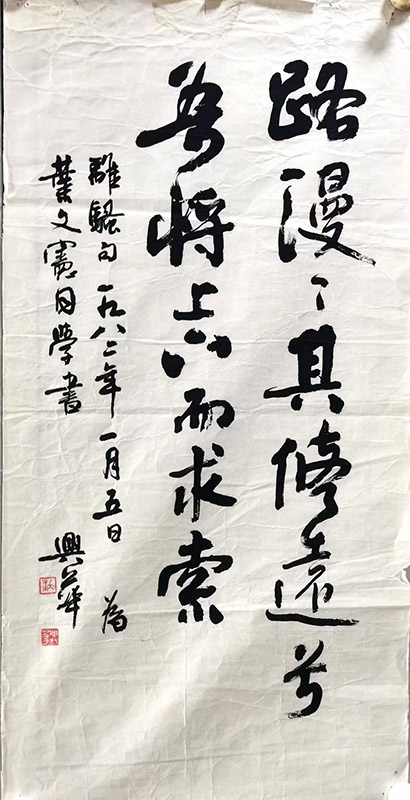 路漫〻其修遠兮
吾將上下而求索
離騷句 一九八二年一月五日 為
葉文憲同學書 興華